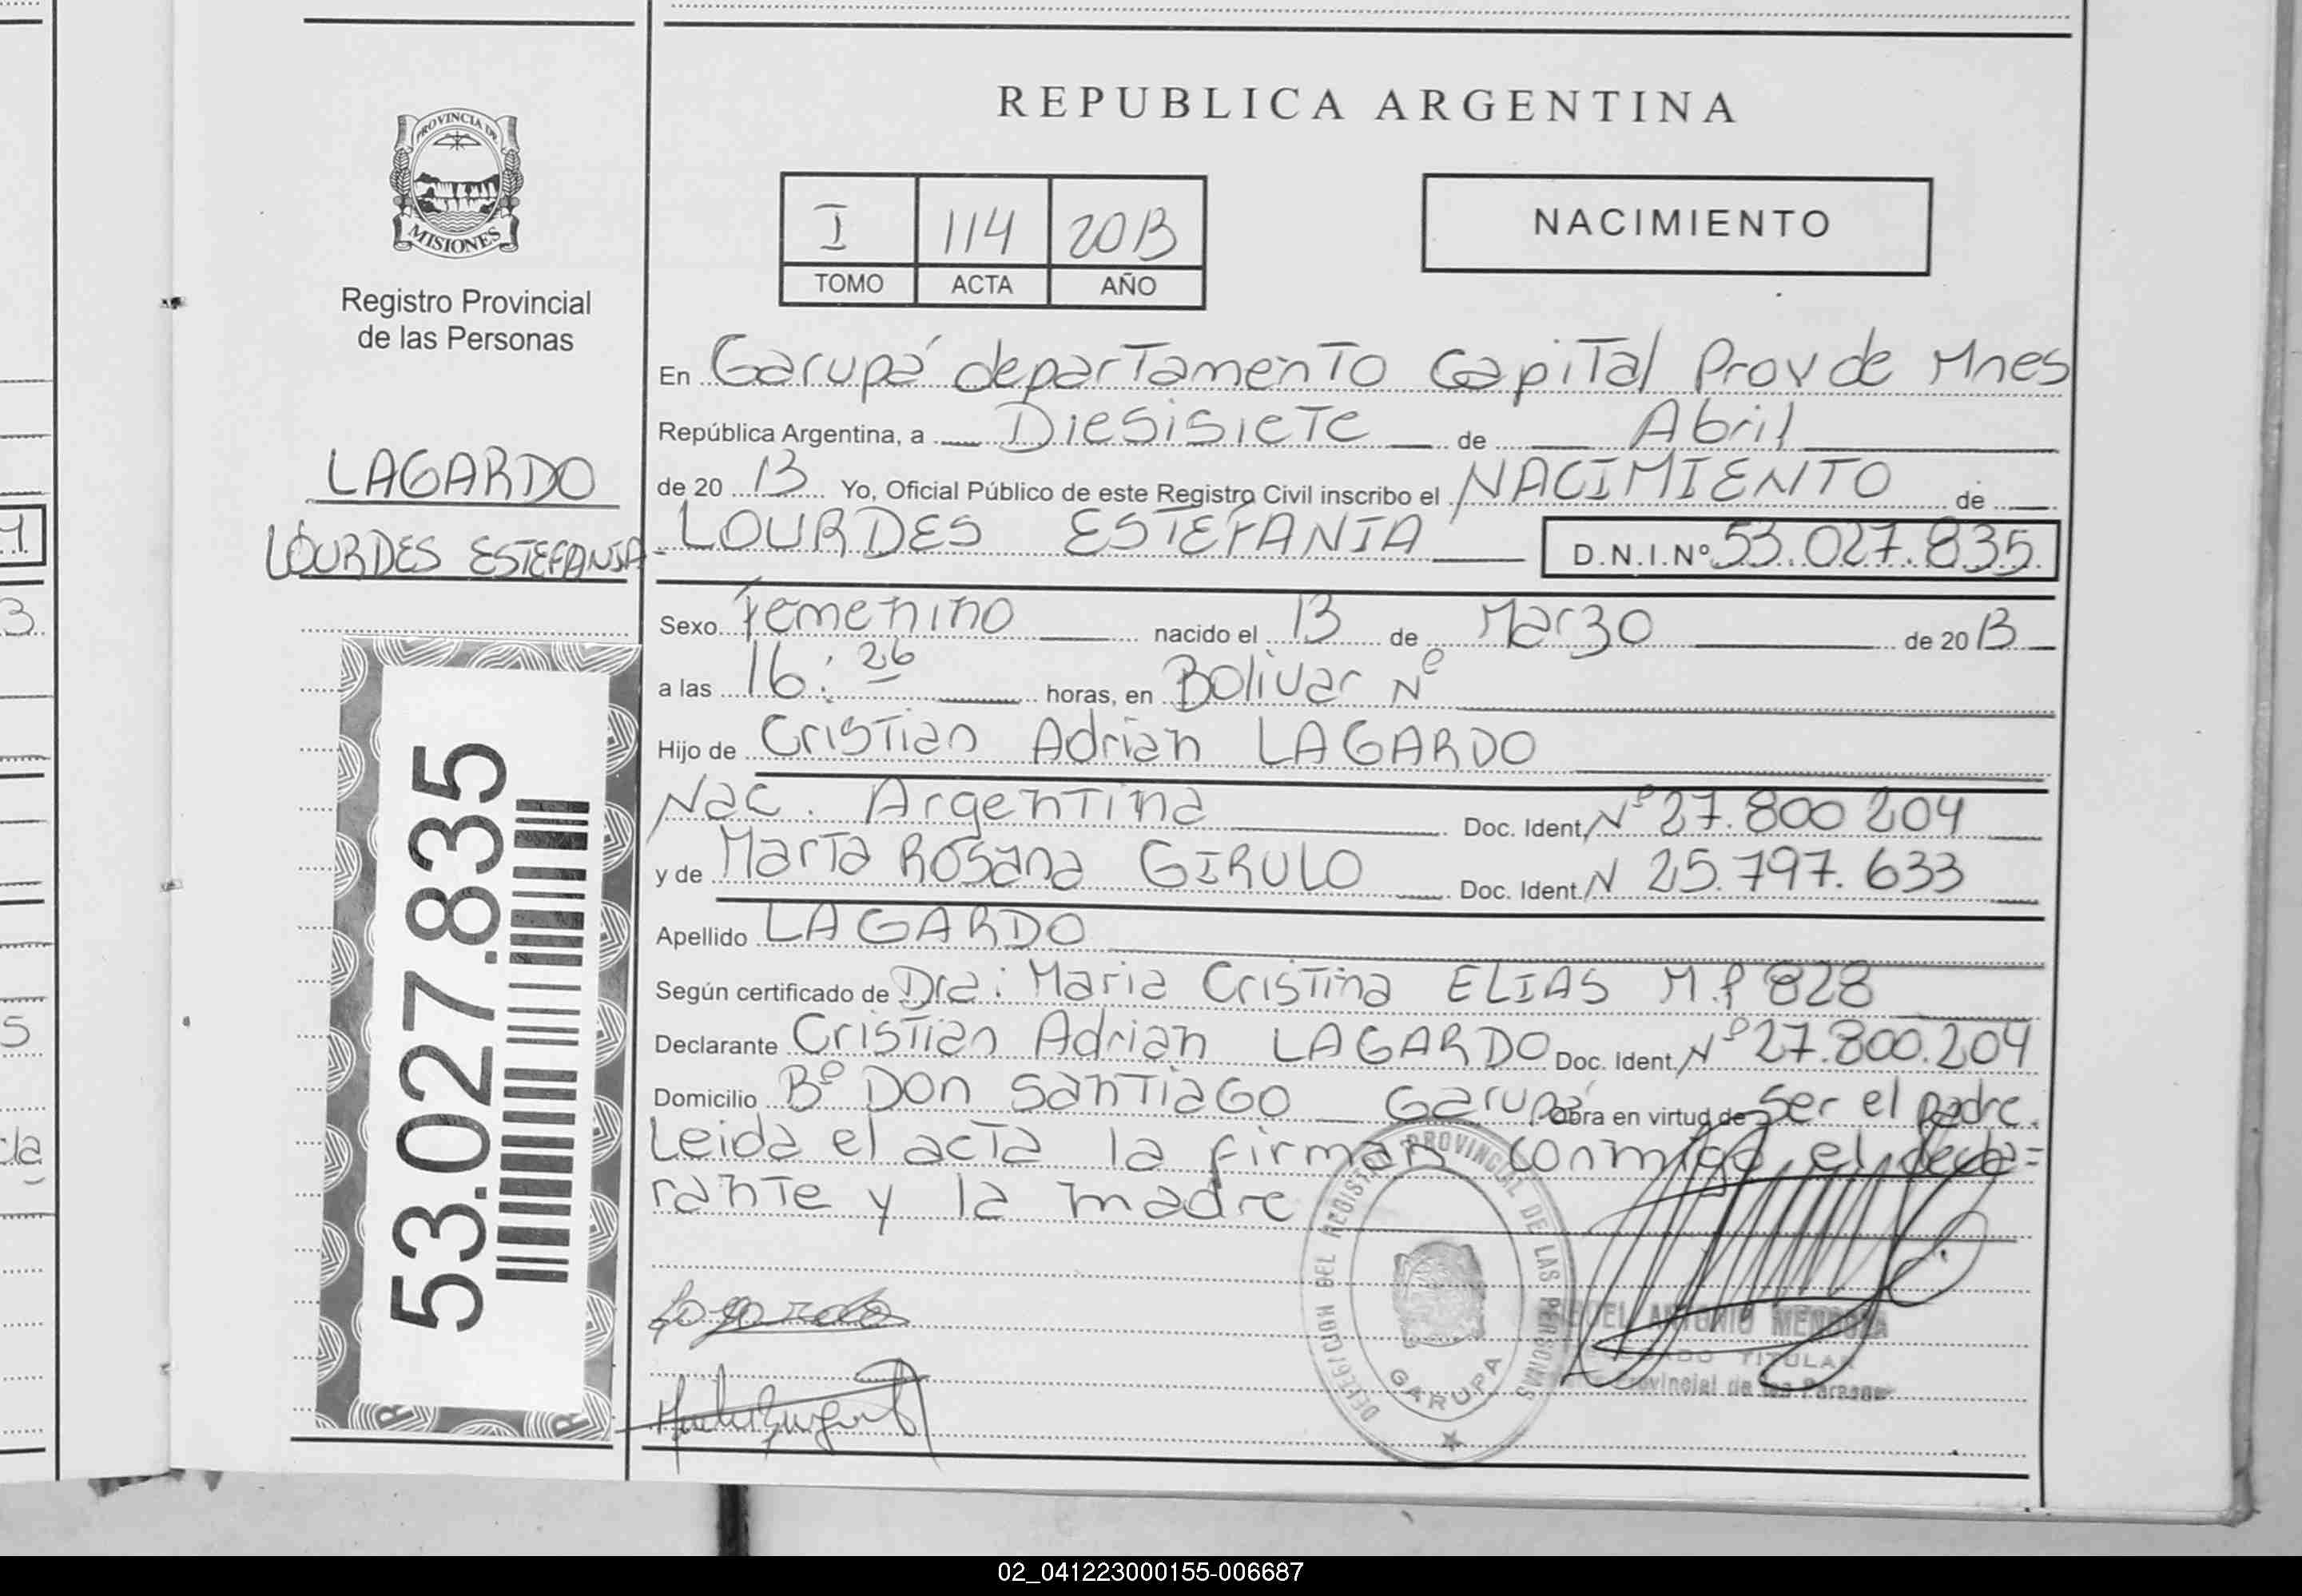 REPUBLICA ARGENTINA
PROVINCIA DE
MISIONES
Registro Provincial
de las Personas
I 114 2013
TOMO ACTA AÑO
NACIMIENTO
LAGARDO
LOURDES ESTEFANIA
53.027.835
En Garupá departamento Capital Prov de Mnes
República Argentina, a Diesisiete de Abril
de 20 13 Yo, Oficial Público de este Registro Civil inscribo el NACIMIENTO de
LOURDES ESTEFANIA D.N.I.Nº 53.027.835
Sexo Femenino nacido el 13 de Marzo de 20 13
a las 16:26 horas, en Bolivar Nº
Hijo de Cristian Adrian LAGARDO
Nac. Argentina Doc. Ident. Nº 27.800 204
y de Marta Rosana GIRULO Doc. Ident. N 25.797.633
Apellido LAGARDO
Según certificado de Dra: Maria Cristina ELIAS M.P 828
Declarante Cristian Adrian LAGARDO Doc. Ident. Nº 27.800.204
Domicilio Bº Don Santiago Garupá Obra en virtud de Ser el padre.
Leida el acta la firman conmigo el decla=
rante y la madre
DELEGACION DEL REGISTRO PROVINCIAL DE LAS PERSONAS
GARUPA
Lagardo
ANTONIO MENDOZA
TITULAR
Provincial de las Personas
02_041223000155-006687